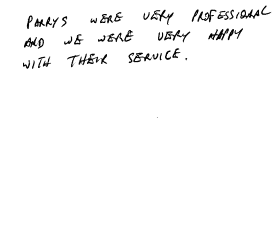 PARRYS WERE VERY PROFESSIONAL
AND WE WERE VERY HAPPY
WITH THEIR SERVICE.